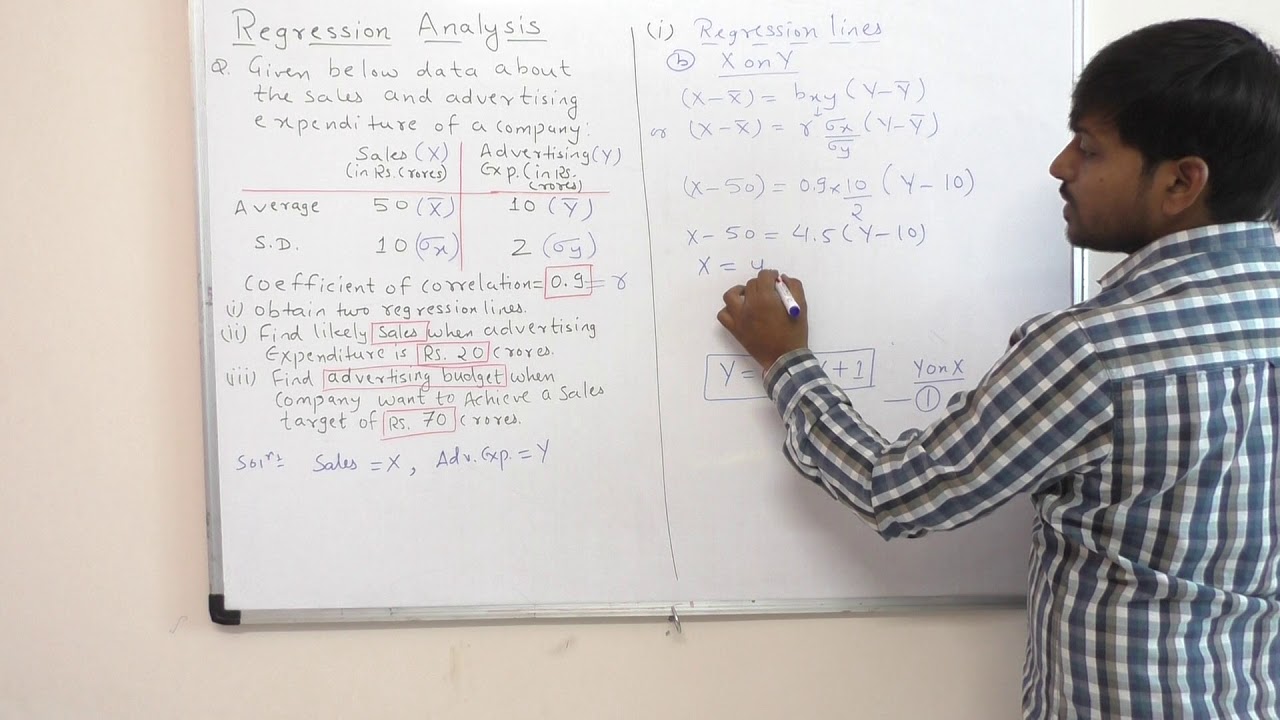 Regression Analysis
Q. Given below data about
the sales and advertising
expenditure of a company:
Sales (X) Advertising (Y)
(in Rs. Crores) Exp. (in Rs.
Crores)
Average 50 (X̄) 10 (Ȳ)
S.D. 10 (σx) 2 (σy)
Coefficient of correlation= 0.9 = r
(i) obtain two regression lines.
(ii) Find likely Sales when advertising
Expenditure is Rs. 20 Crores.
(iii) Find advertising budget when
Company want to Achieve a Sales
target of Rs. 70 Crores.
Solⁿ:- Sales = X, Adv. Exp. = Y
(i) Regression lines
(b) X on Y
(X – X̄) = bxy (Y – Ȳ)
or (X – X̄) = r σx/σy (Y – Ȳ)
(X – 50) = 0.9 × 10/2 (Y – 10)
X – 50 = 4.5 (Y – 10)
X = 4
Y = X + 1 Y on X
— ①